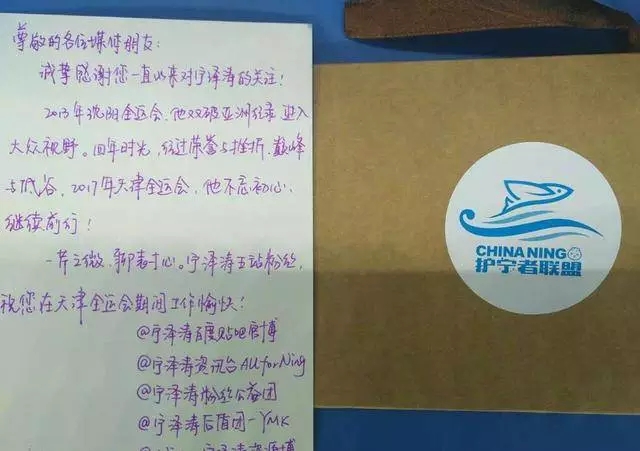 尊敬的各位媒体朋友:
诚挚感谢您一直以来对宁泽涛的关注!
2013年沈阳全运会,他双破亚洲纪录,进入
大众视野。四年时光,经过荣誉与挫折,巅峰
与低谷,2017年天津全运会,他不忘初心,
继续前行!
一芹之微,聊表寸心。宁泽涛五站粉丝,
祝您在天津全运会期间工作愉快!
@宁泽涛百度贴吧官博
@宁泽涛资讯台AllforNing
@宁泽涛粉丝公益团
@宁泽涛后盾团-YMK
CHINA NING
护宁者联盟